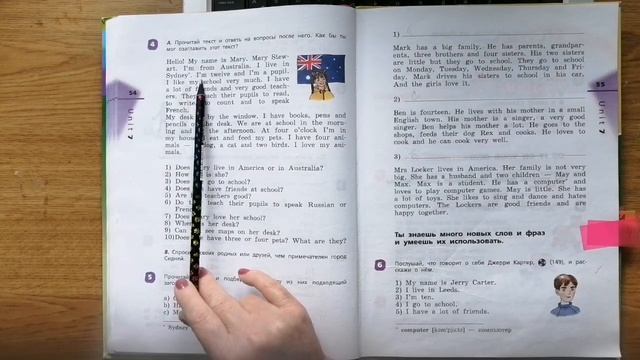 4
A. Прочитай текст и ответь на вопросы после него. Как бы ты
мог озаглавить этот текст?
Hello! My name is Mary. Mary Stew-
art. I'm from Australia. I live in
Sydney*. I'm twelve and I'm a pupil.
I like my school very much. I have
a lot of friends and very good teach-
ers. They teach their pupils to read,
to write, to count and to speak
French.
My desk by the window. I have books, pens and
pencils the desk. We are at school in the morn-
ing and the afternoon. At four o'clock I'm in
my house eat and feed my pets. I have four
mals dog, a cat and two birds. I love my ani-
mals.
54
Unit 7
1) Does live in America or in Australia?
2) How is she?
3) Does go to school?
4) Does have friends at school?
5) Are teachers good?
6) Do teach their pupils to speak Russian or
French
7) Does love her school?
8) Where her desk?
9) Can see maps on her desk?
10) Does have three or four pets? What are they?
B. своих родных или друзей, чем примечателен город
Сидней.
5
* Sydney
1)
Mark has a big family. He has parents, grandpar-
ents, three brothers and four sisters. His two sisters
are little but they go to school. They go to school
on Monday, Tuesday, Wednesday, Thursday and Fri-
day. Mark drives his sisters to school in his car.
And the girls love it.
2)
Ben is fourteen. He lives with his mother in a small
English town. His mother is a singer, a very good
singer. Ben helps his mother a lot. He goes to the
shops, feeds their dog Rex and cooks. He loves to
cook and he can cook very well.
3)
Mrs Locker lives in America. Her family is not very
big. She has a husband and two children — May and
Max. Max is a student. He has a computer* and
loves to play computer games. May is little. She has
a lot of toys. She likes to sing and dance and hates
computers. The Lockers are good friends and are
happy together.
55
Unit 7
Ты знаешь много новых слов и фраз
и умеешь их использовать.
6
Послушай, что говорит о себе Джерри Картер, (149), и рас-
скажи о нём.
1) My name is Jerry Carter.
2) I live in Leeds.
3) I'm ten.
4) I go to school.
5) I have a lot of friends.
* computer [kəmˈpjuːtə] — компьютер